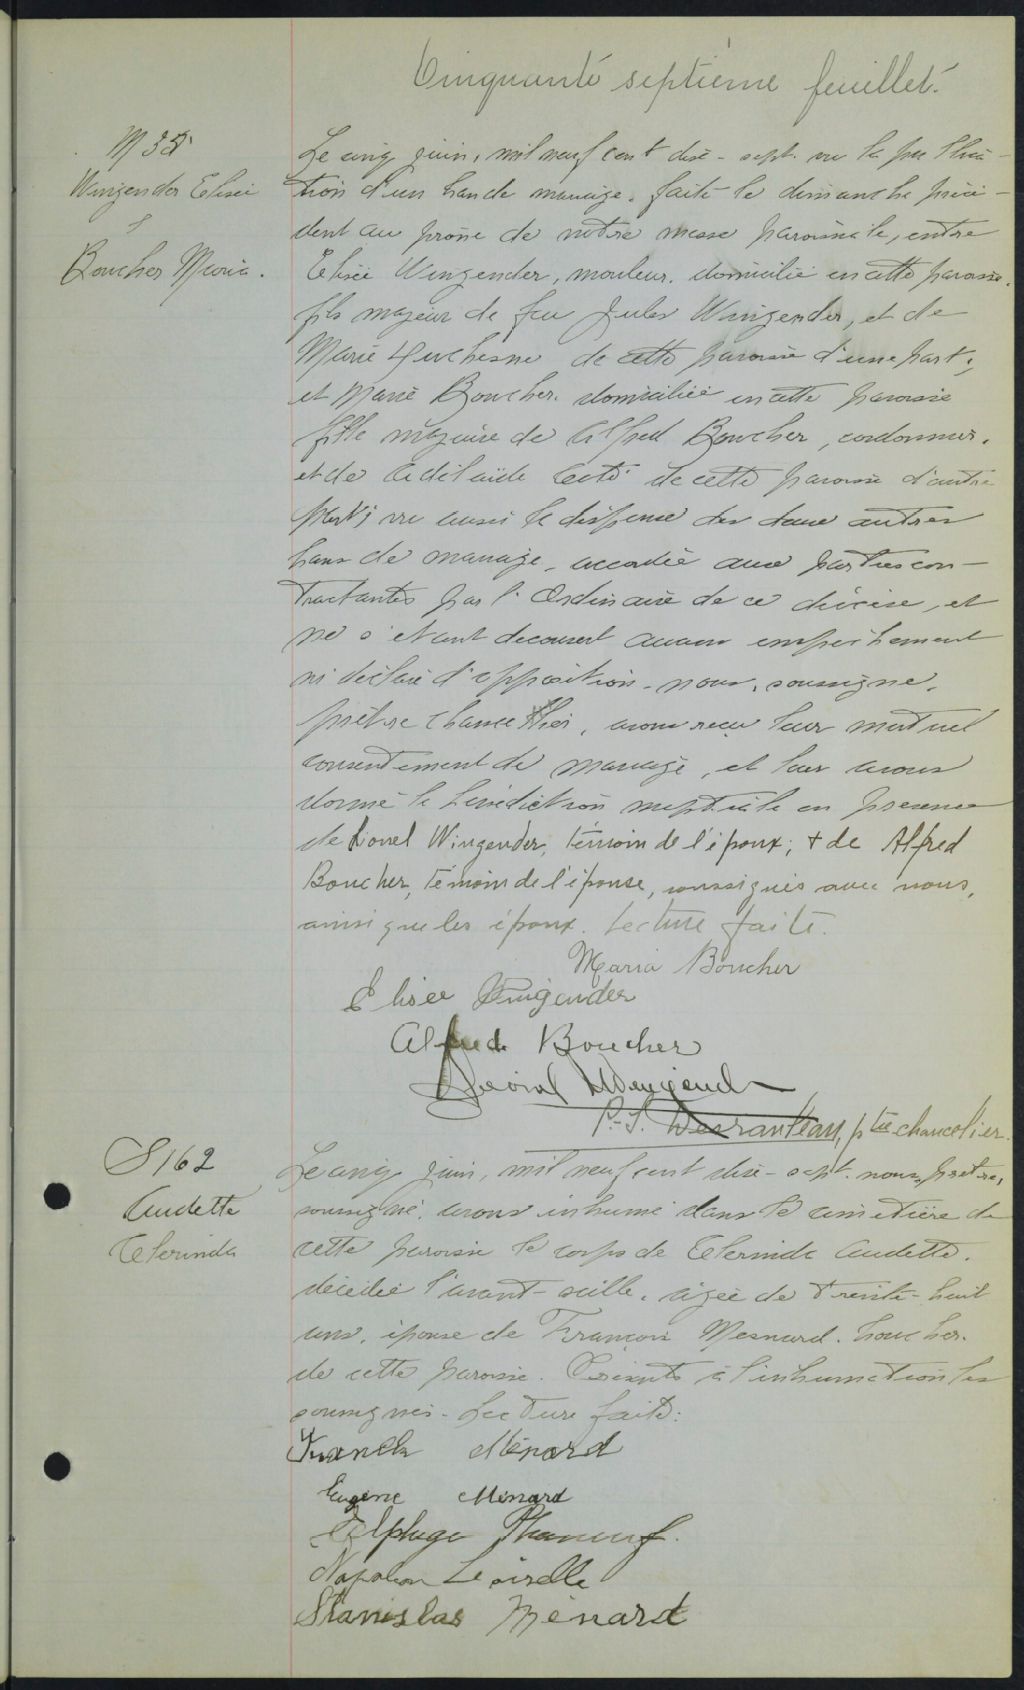 Cinquante septième feuillet.
M 35
Wingender Elisée
&
Boucher Maria.
Le cinq juin, mil neuf cent dix-sept. vu la publica-
tion d'un ban de mariage, faite le dimanche précé-
dent au prône de notre messe paroissiale, entre
Elisée Wingender, mouleur, domicilié en cette paroisse,
fils majeur de feu Jules Wingender, et de
Marie Duchesne de cette paroisse d'une part;
et Maria Boucher, domiciliée en cette paroisse
fille majeure de Alfred Boucher, cordonnier,
et de Adélaïde Coté de cette paroisse d'autre
part; vu aussi la dispense des deux autres
bans de mariage, accordée aux parties con-
tractantes par l'Ordinaire de ce diocèse, et
ne s'étant découvert aucun empêchement
ni déclaré d'opposition, nous, soussigné,
prêtre chancelier, avons reçu leur mutuel
consentement de mariage, et leur avons
donné la bénédiction nuptiale en présence
de Lionel Wingender, témoin de l'époux; + de Alfred
Boucher, témoin de l'épouse, soussignés avec nous,
ainsi que les époux. Lecture faite.
Maria Boucher
Elisée Wingender
Alfred Boucher
Wingender
P.-S. Desranleau, ptre chancelier.
S 162
Audette
Clerinda
Le cinq juin, mil neuf cent dix-sept. nous, prêtre,
soussigné, avons inhumé dans le cimetière de
cette paroisse le corps de Clerinda Audette,
décédée l'avant-veille, agée de trente-huit
ans, épouse de François Mesnard, boucher,
de cette paroisse. Présents à l'inhumation les
soussignés. Lecture faite:
Franck Ménard
Eugène Ménard
Elphege Phaneuf.
Napoleon Loiselle
Stanislas Ménard